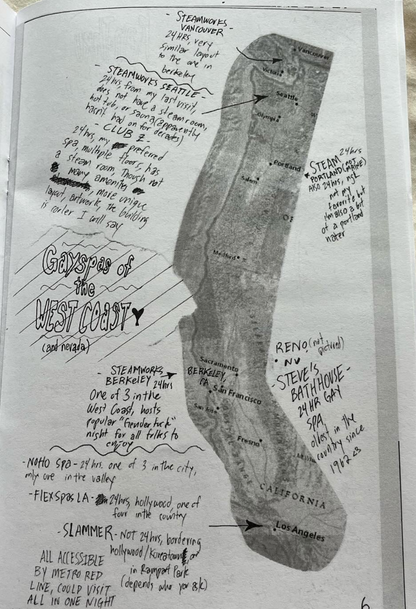 - STEAMWORKS -
VANCOUVER
24 HRS, very
similar layout
to the one in
berkeley
- STEAMWORKS SEATTLE -
24 hrs, from my last visit,
does not have a steam room,
hot tub, or sauna (apparently
hasn't had for decades)
- CLUB Z -
24 hrs, my preferred
spa, multiple floors, has
a steam room though not
many amenities
more unique
layout, artwork, the building
is cooler I will say
Gayspas of
the
WEST COAST
(and nevada)
STEAMWORKS
BERKELEY 24hrs
One of 3 in the
West Coast, hosts
popular
night for all folks to
enjoy
- NOHO SPA - 24 hrs. one of 3 in the city,
only one in the valley
- FLEX SPAS LA - 24 hrs, hollywood, one of
four in the country
- SLAMMER - NOT 24 hrs, bordering
hollywood/Koreatown or
in Rampart Park
(depends who you ask)
ALL ACCESSIBLE
BY METRO RED
LINE, COULD VISIT
ALL IN ONE NIGHT
Vancouver
Seattle
Olympia
Portland
Salem
Medford
Sacramento
BERKELEY,
CA
San Francisco
Fresno
CALIFORNIA
Los Angeles
STEAM
PORTLAND
24 hrs
not my
favorite but
I'm also a bit
of a portland
hater
RENO (not
pictured)
NV
- STEVE'S
BATHHOUSE -
24 HR GAY
SPA,
oldest in the
country since
6